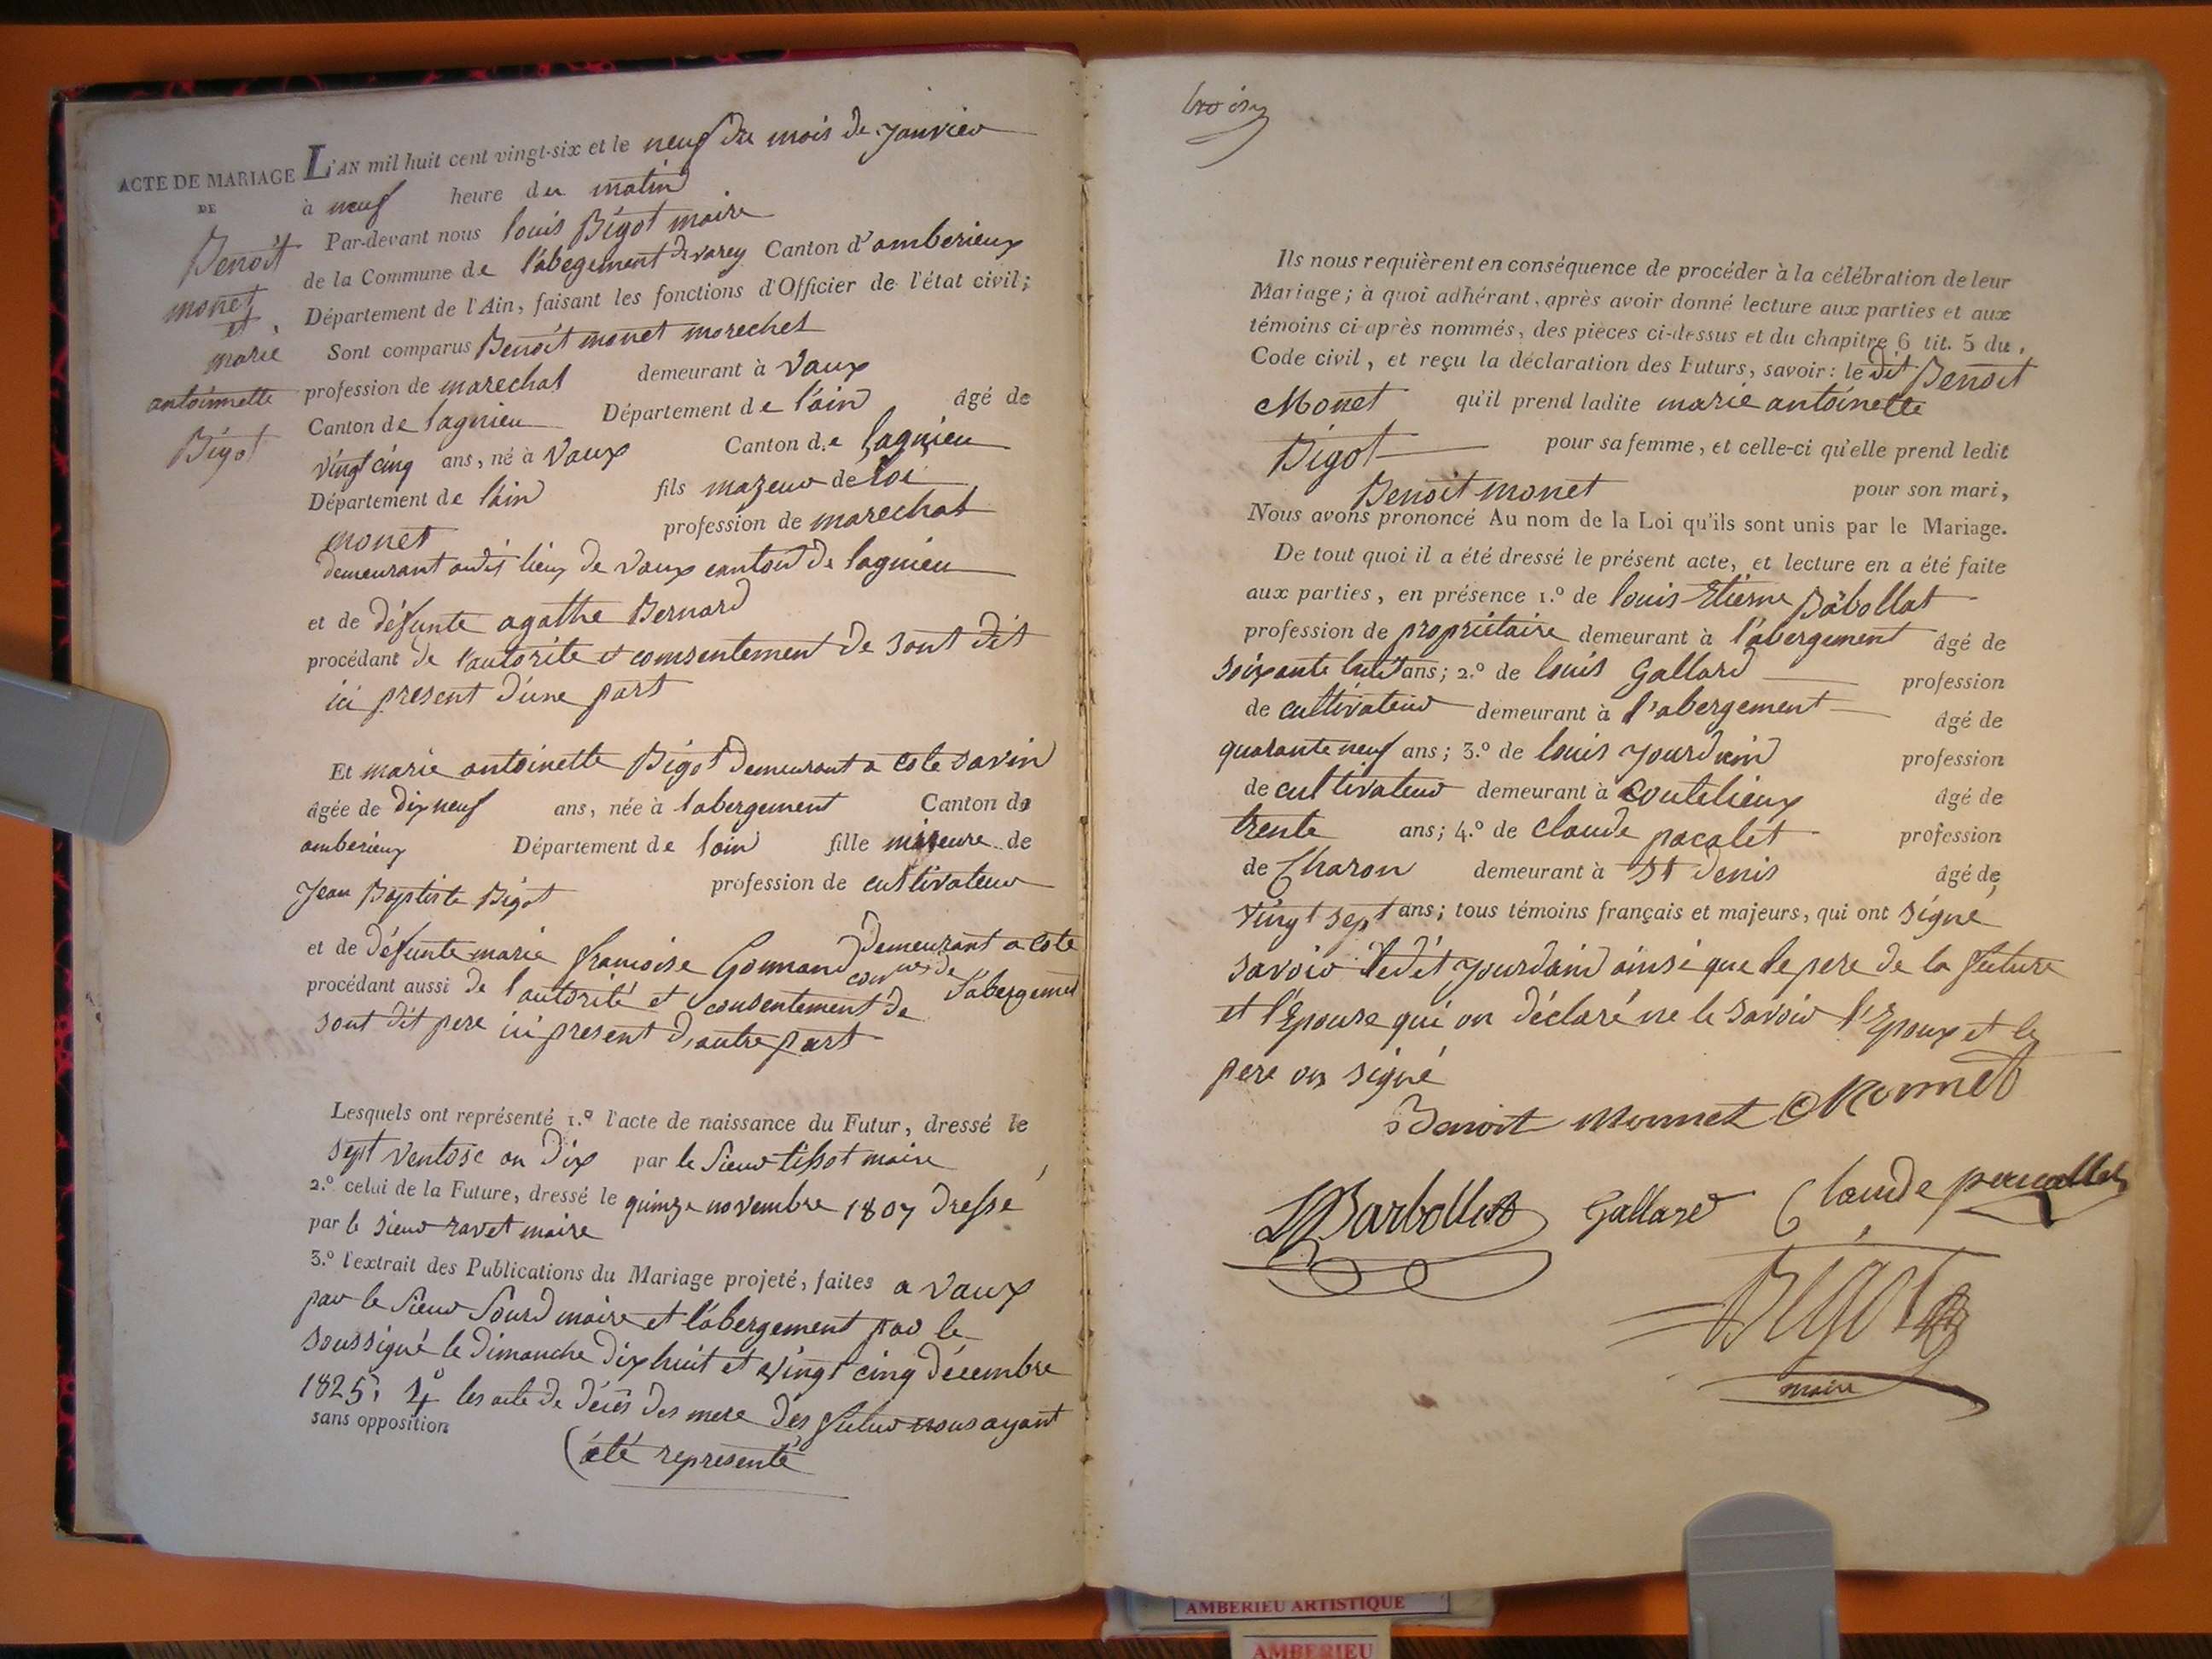 ACTE DE MARIAGE
DE
Benoit
monet
et
marie
antoinnette
Bigot
L'AN mil huit cent vingt-six et le neuf du mois de janvier
à neuf heure du matin
Par-devant nous louis Bigot maire
de la Commune de l'abegement de varey Canton d'amberieux
Département de l'Ain, faisant les fonctions d'Officier de l'état civil;
Sont comparus Benoit monet marechet
profession de marechal demeurant à Vaux
Canton de lagnieu Département de l'ain âgé de
vingt cinq ans, né à Vaux Canton de lagnieu
Département de l'ain fils mazeur de loi
monet profession de marechal
demeurant audit lieu de Vaux canton de lagnieu
et de défunte agathe Bernard
procédant de l'autorite et comsentement de sont dit
ici present d'une part
Et marie antoinette Bigot demeurant a cote savin
âgée de dix neuf ans, née à l'abergement Canton de
amberieux Département de l'ain fille mineure de
Jean Baptiste Bigot profession de cultivateur
et de défunte marie francoise Gonnand demeurant a cote
procédant aussi de l'autorité et consentement de l'abergement
sont dit pere ici present d'autre part
Lesquels ont représenté 1.º l'acte de naissance du Futur, dressé le
sept ventose an dix par le Sieur tissot maire
2.º celui de la Future, dressé le quinze novembre 1807 dressé
par le sieur ravet maire
3.º l'extrait des Publications du Mariage projeté, faites a Vaux
par le Sieur Sourd maire et l'abergement par le
soussigné le dimanche dix huit et vingt cinq décembre
1825; 4º les acte de décès des mere des futur nous ayant
sans opposition
(été representé
troisy
Ils nous requièrent en conséquence de procéder à la célébration de leur
Mariage; à quoi adhérant, après avoir donné lecture aux parties et aux
témoins ci-après nommés, des pièces ci-dessus et du chapitre 6 tit. 5 du
Code civil, et reçu la déclaration des Futurs, savoir: le dit Benoit
Monet qu'il prend ladite marie antoinette
Bigot pour sa femme, et celle-ci qu'elle prend ledit
Benoit monet pour son mari,
Nous avons prononcé Au nom de la Loi qu'ils sont unis par le Mariage.
De tout quoi il a été dressé le présent acte, et lecture en a été faite
aux parties, en présence 1.º de louis Etienne Babollat
profession de propriétaire demeurant à l'abergement âgé de
soixante huit ans; 2.º de louis Gallard profession
de cultivateur demeurant à l'abergement âgé de
quarante neuf ans; 3.º de louis jourdain profession
de cultivateur demeurant à coutelieux âgé de
trente ans; 4.º de claude pacalet profession
de Charon demeurant à St Denis âgé de
vingt sept ans; tous témoins français et majeurs, qui ont signé
savoir ledit jourdaind ainsi que le pere de la future
et l'Epouse qui on déclaré ne le savoir l'Epoux et le
pere on signé
Benoit monnet Monnet
LBarbollat Gallard Claude pacallet
Bigot
maire
AMBERIEU ARTISTIQUE
AMBERIEU